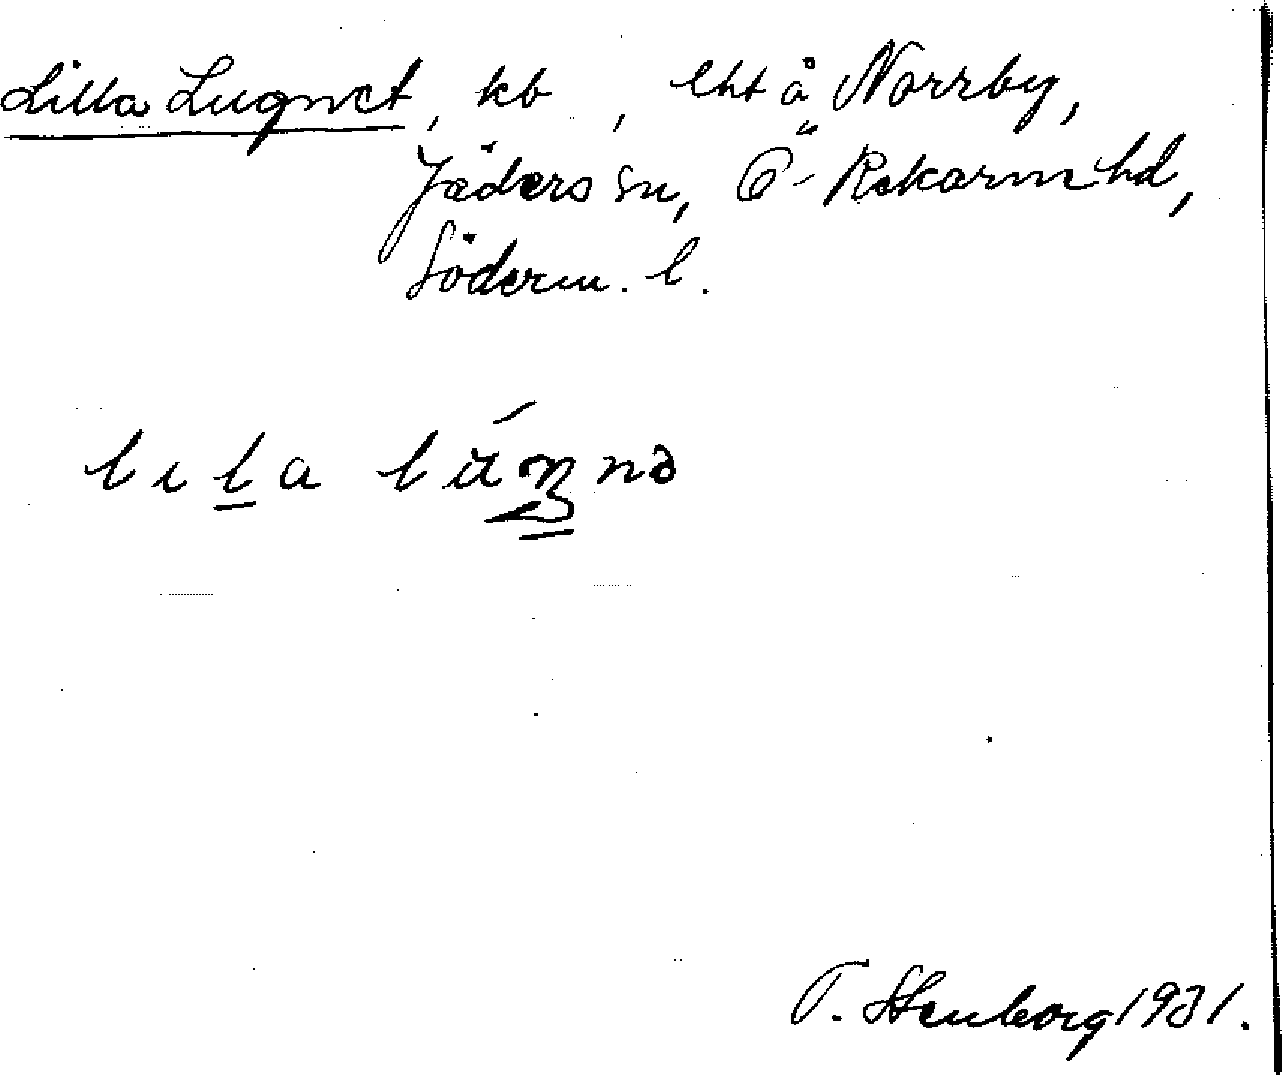 Lilla Lugnet, kb, lht å Norrby,
Jäders sn, Ö. Rekarne hd,
Söderm. l.
lıla
T. Stenborg 1931.